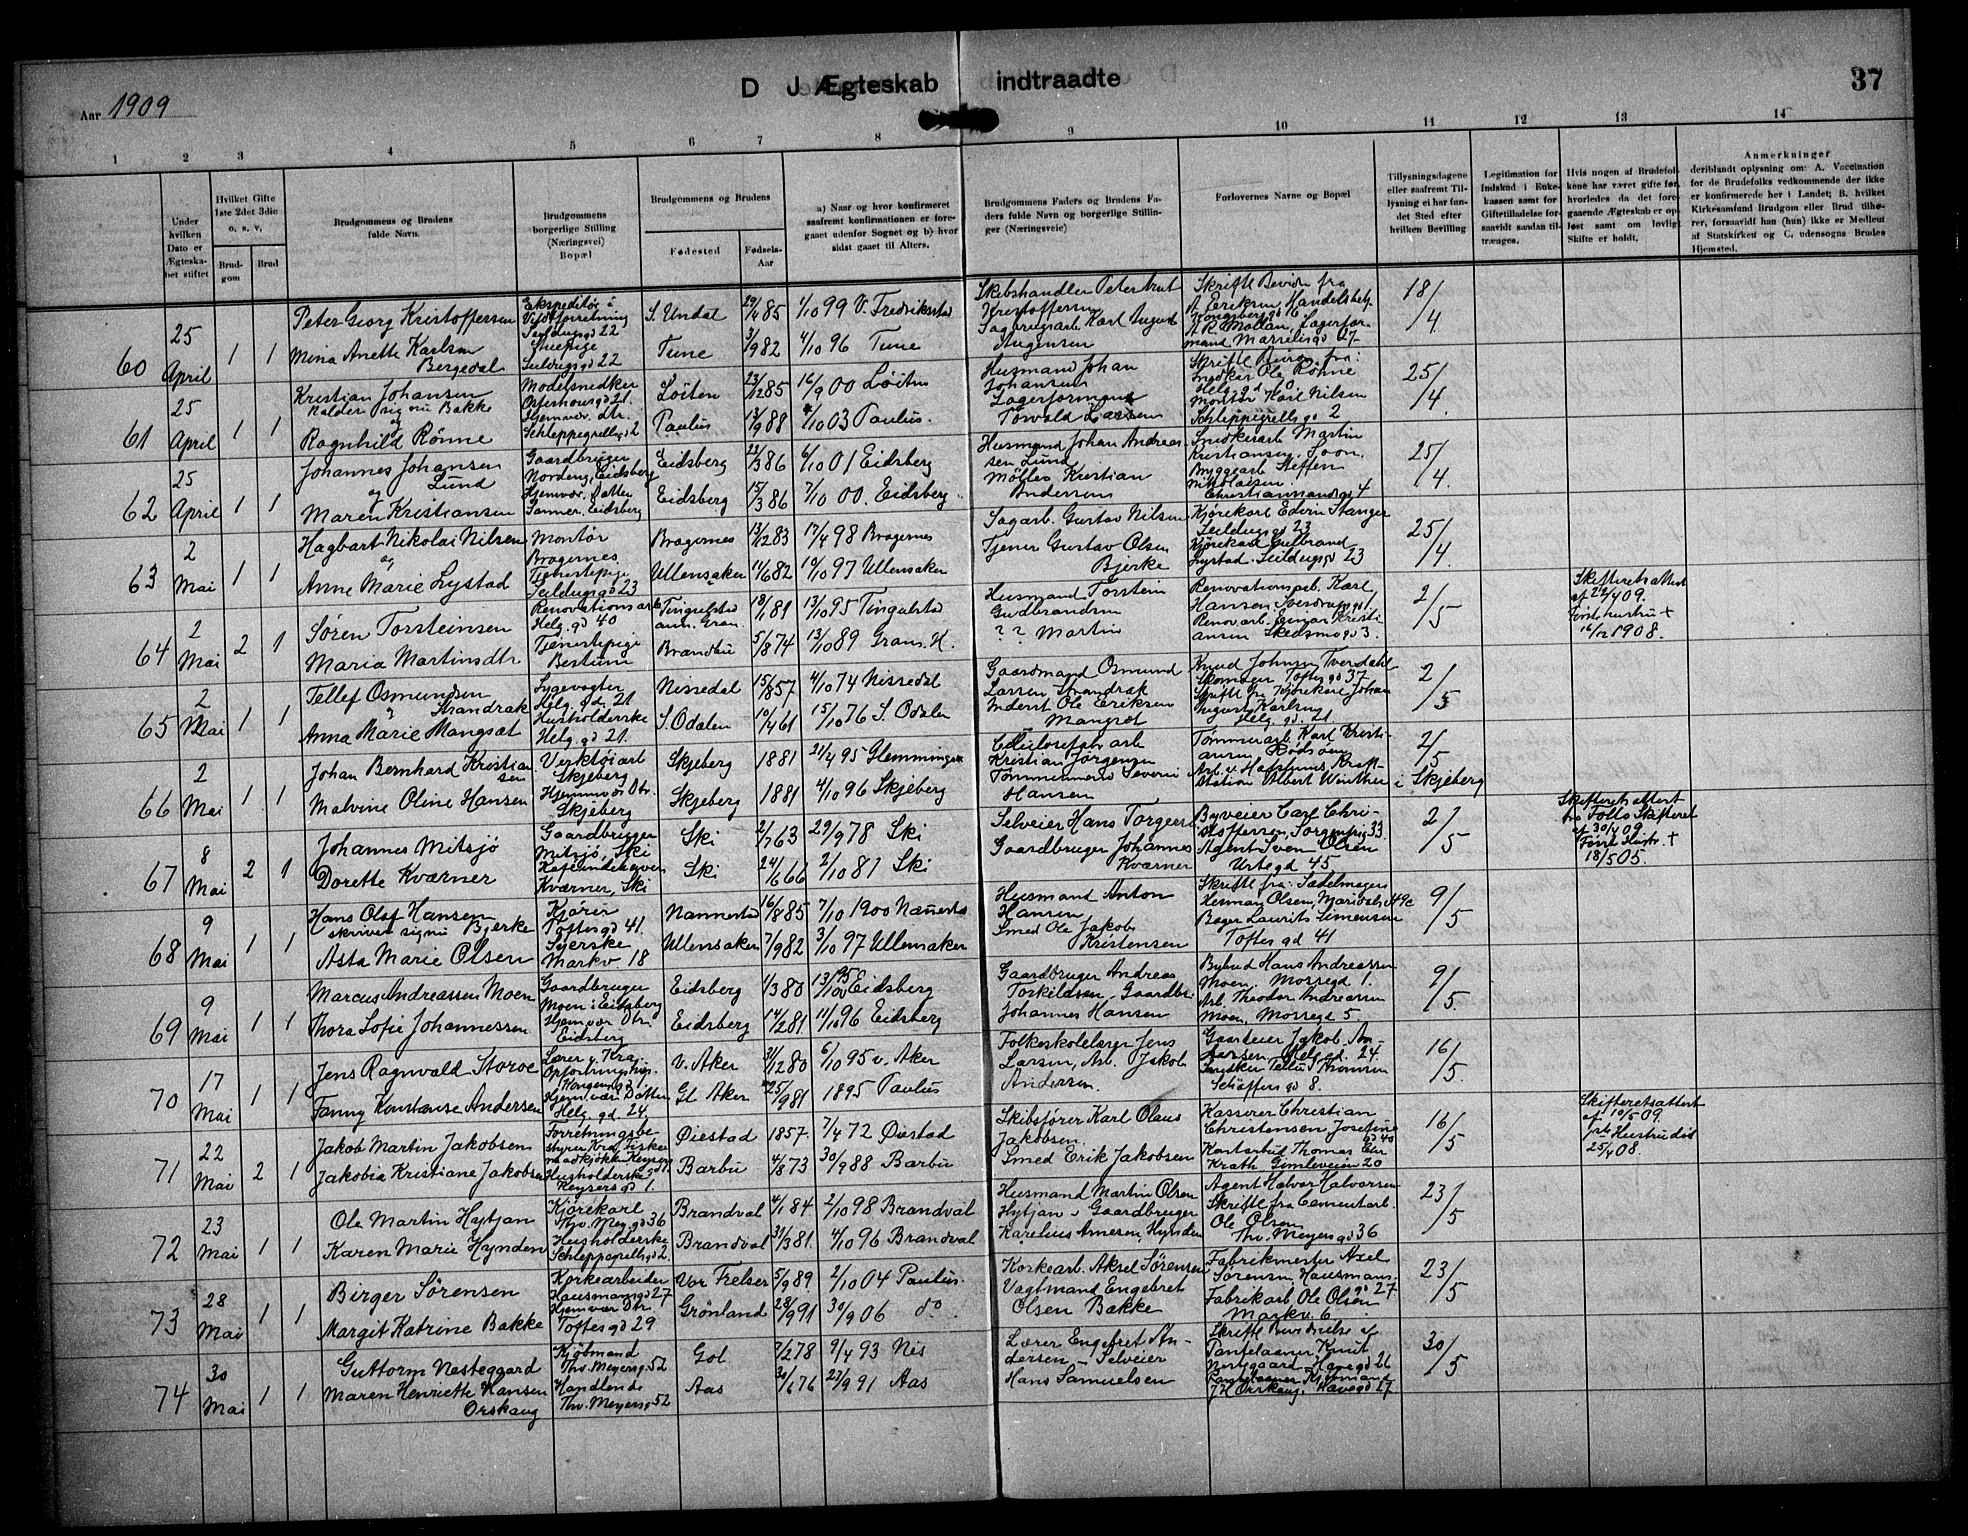 Aar 1909
D J Ægteskab indtraadte
37
1 2 3 4 5 6 7 8 9 10 11 12 13 14
Under hvilken Dato er Ægteskabet stiftet
Hvilket Gifte 1ste 2det 3die o. s. v,
Brudgom
Brud
Brudgommens og Brudens fulde Navn.
Brudgommens borgerlige Stilling (Næringsvei) Bopæl
Brudgommens og Brudens
Fødested
Fødsels-Aar
a) Naar og hvor konfirmeret saafremt konfirmationen er foregaaet udenfor Sognet og b) hvor sidst gaaet til Alters.
Brudgommens Faders og Brudens Faders fulde Navn og borgerlige Stillinger (Næringsveie)
Forlovernes Navne og Bopæl
Tillysningsdagene eller saafremt Tillysning ei har fundet Sted efter hvilken Bevilling
Legitimation for Indskud i Enkekassen samt for Giftetilladelse forsaavidt saadan tiltrænges.
Hvis nogen af Brudefolkene har været gifte før, hvorledes da det foregaaende Ægteskab er opløst samt om lovligt Skifte er holdt.
Anmerkninger
deriblandt oplysning om: A. Vaccination for de Brudefolks vedkommende der ikke er konfirmerede her i Landet; B. hvilket Kirkesamfund Brudgom eller Brud tilhører, forsaavidt han (hun) ikke er Medlem af Statskirken og C. udensogns Brudes Hjemsted.
60 25 April 1 1
Peter Georg Kristoffersen S. Undal 29/4 85 1/10 99 V. Fredrikstad
Mina Anette Karlsen Bergedal Seildugsgd 22 Tune 3/9 82 4/10 96 Tune
18/4
61 25 April 1 1
Kristian Johansen kalder sig nu Bakke Modelsnedker Løiten 23/12 85 16/9 00 Løiten
og
Ragnhild Rønne Hjemvær. dtr. Schleppegrellsgd 2 Paulus 13/9 88 4/10 03 Paulus.
Husmand Johan Johansen
Lagerformand Torvald Larsen
Snedker Ole Rønne
Montør Karl Nilsen Schleppegrellsgd 2
25/4
62 25 April 1 1
Johannes Johansen Lund Gaardbruger Nordeng, Eidsberg Eidsberg 22/3 86 6/10 01 Eidsberg
og
Maren Kristiansen Hjemvær. Datter Eidsberg Eidsberg 15/3 86 7/10 00. Eidsberg
Husmand Johan Andreassen Lund
Møller Kristian Andersen
Snedkerarb Martin Kristiansen
Byggearb Steffen Nikolaisen. Christianmandsgd 4
25/4
63 2 Mai 1 1
Hagbart Nikolai Nilsen Montør Bragernes Bragernes 13/12 83 17/4 98 Bragernes
og
Anne Marie Lystad Tjenestepige Seildugsgd 23 Ullensaker 11/6 82 10/10 97 Ullensaker
Sagarb. Gustav Nilsen
Tjener Gustav Olsen Bjerke
Kjørekarl Edvin Stanger Seildugsgd 23
Kjørekarl Gulbrand Lystad Seildugsgd 23
25/4
64 2 Mai 2 1
Søren Torsteinsen Renovationsarb Helg. gd 40 Tingelstad 18/1 81 13/10 95 Tingelstad
Maria Martinsdtr Tjenestepige Bestum Brandbu 5/8 74 13/10 89 Gran. H.
Husmand Torstein Gudbrandsen
? ? Martin
Renovationsarb. Karl Hansen
Renov. arb. Einar Kristiansen Skedsmogd 3.
2/5
Skifteretsattest af 22/4 09. Første hustru + 16/12 1908.
65 2 Mai 1 1
Tellef Osmundsen Strandrak Helg. gd. 21 Nissedal 15/8 57 4/10 74 Nissedal
Anna Marie Mangset Husholderske Helg. gd 21. S. Odalen 10/4 61 15/10 76 S. Odalen
Gaardmand Osmund Larsen Strandrak
Inderst Ole Eriksen Mangset
Knud Johnsen Tverdahl Skomager Toftes gd 37
Skriftl fra Kjørekarl Johan August Karlsen Helg. gd. 21.
2/5
66 2 Mai 1 1
Johan Bernhard Kristiansen Verktøiarb Skjeberg Skjeberg 1881 21/4 95 Glemminge
Malvine Oline Hansen Hjemmevær Dtr. Skjeberg Skjeberg 1881 4/10 96 Skjeberg
Cellulosefabr arb Kristian Jørgensen
Tømmermand Severin Hansen
Tømmerarb. Karl Kristiansen
Arb. v. Hafslunds Kraftstation Albert Winther
2/5 i Skjeberg
67 8 Mai 2 1
Johannes Mitsjø Gaardbruger Mitsjø, Ski Ski 2/7 63 29/9 78 Ski
Dorette Kværner Kværner, Ski Ski 24/6 66 2/10 81 Ski
Selveier Hans Torgersen
Gaardbruger Johannes Kværner
Byveier Carl Christoffersen, Sorgenfrig 33.
Agent Sven Olsen Urtegd 45
2/5
Skifteretsattest fra Follo Skifteret af 30/4 09. Første Hustr. + 18/5 05.
68 9 Mai 1 1
Hans Olaf Hansen skriver sig nu Bjerke Kjører Toftes gd 41. Nannestad 16/8 85 7/10 1900 Nannestad
Asta Marie Olsen Syerske Markv. 18 Ullensaker 7/9 82 3/10 97 Ullensaker
Husmand Anton Hansen
Smed Ole Jakob Kristensen
Skriftl fra: Sadelmager Herman Olsen, Maridalsv 49c
Bager Laurits Simensen Toftes gd 41
9/5
69 9 Mai 1 1
Marcus Andreassen Moen Gaardbruger Moen i Eidsberg Eidsberg 1/3 80 13/10 95 Eidsberg
Thora Sofie Johannessen Hjemvær Dtr. Eidsberg Eidsberg 14/2 81 11/10 96 Eidsberg
Gaardbruger Andreas Torkildsen, Gaardbr. Johannes Hansen
Bybud Hans Andreassen Moen, Mossegd 1.
Arb. Theodor Andreassen Moen, Mossegd 5
9/5
70 17 Mai 1 1
Jens Ragnvald Storoe V. Aker 31/12 80 6/10 95 v. Aker
Fanny Konstanse Andersen Hjemvær Datter Helg. gd. 24. Gl Aker 25/9 81 1895 Paulus
Folkeskolelærer Jens Larsen, Arb. Jakob Andersen.
Gaardeier Jakob Helg gd. 24.
Snedker Tellef Thomsen Schøffers gd 8.
16/5
71 22 Mai 2 1
Jakob Martin Jakobsen Forretningsbestyrer Øiestad 1857. 7/4 72 Øiestad
Jakobia Kristiane Jakobsen Husholderske Keysers gd 1. Barbu 4/8 73 30/9 88 Barbu
Skibsfører Karl Olaus Jakobsen.
Smed Erik Jakobsen
Kasserer Christian Christensen, Josefinegd 40
Kontorbud Thomas Chr Krath Gimleveien 20
16/5
Skifteretsattest af 10/5 09. 1ste Hustru død 25/4 08.
72 23 Mai 1 1
Ole Martin Hytjan Kjørekarl Thv. Mey. gd 36 Brandval 4/1 84 2/10 98 Brandval
Karen Marie Hynden Husholderske Schleppegrellsgd 2. Brandval 31/3 81. 4/10 96 Brandval
Husmand Martin Olsen Hytjan, Gaardbruger Karelius Arnesen Hynden
Agent Halvor Halvorsen
Skriftl fra Cementarb. Ole Olsen Thv. Meyers gd 36
23/5
73 28 Mai 1 1
Birger Sørensen Korkearbeider Hausmansgd 27 Vor Frelser 5/9 89. 2/10 04 Paulus.
Margit Katrine Bakke Hjemvær Dtr. Toftes gd 29 Grønland 28/9 91 30/9 06 do
Korkearb. Aksel Sørensen
Vagtmand Engebret Olsen Bakke
Fabrikmester Axel Sørensen, Hausmansgd 27
Fabrikarb Ole Olsen Markv. 6
23/5
74 30 Mai 1 1
Guttorm Nesteggard Kjøbmand Thv. Meyersg 52 Gol 2/2 78 9/4 93 Nes
Maren Henriette Hansen Orskaug Handlende Thv. Meyers g 52 Aas 30/6 76 27/9 91 Aas
Lærer Engebret Andersen - Selveier Hans Samuelsen
Skriftl Bevidnelse af Pantelaaner Knut Havegd 26
Orskaug, Havegd 27
30/5